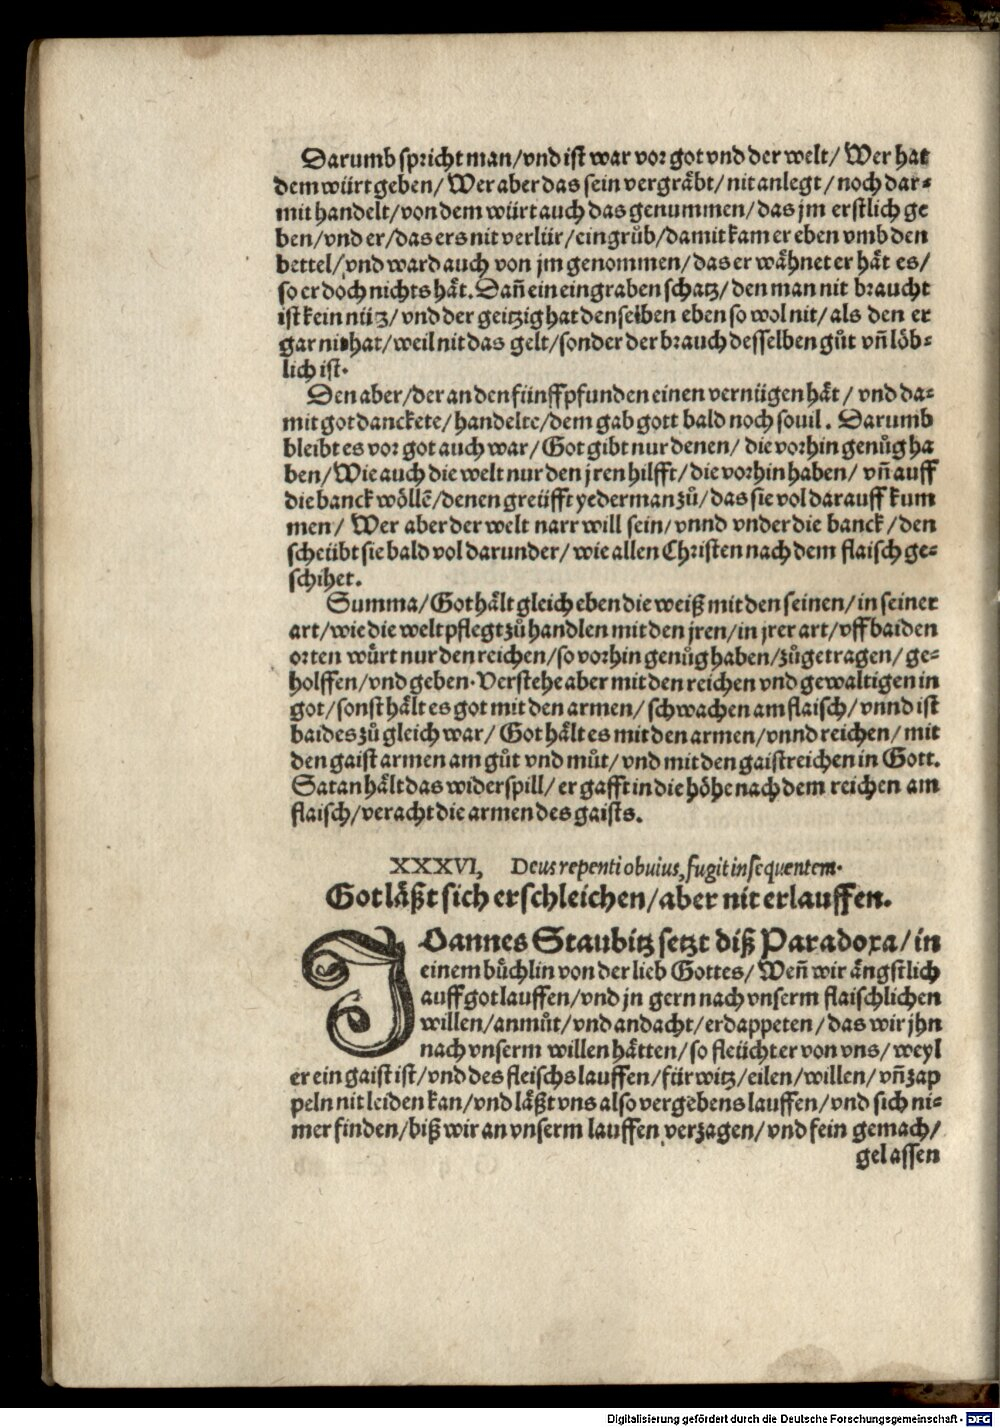 Darumb spricht man/vnd ist war vor got vnd der welt/ Wer hat
dem würt geben/ Wer aber das sein vergräbt/ nit anlegt/ noch dar⸗
mit handelt/von dem würt auch das genummen/das jm erstlich ge
ben/vnd er/das ers nit verlür/eingrůb/damit kam er eben vmb den
bettel/vnd ward auch von jm genommen/das er wähnet er hät es/
so er doch nichts hät. Dañ ein eingraben schatz/den man nit braucht
ist kein nütz/vnd der geitzig hat denselben eben so wol nit/als den er
gar nit hat/weil nit das gelt/sonder der brauch desselben gůt vñ löb⸗
lich ist.
Den aber/der an den fünff pfunden einen vernügen hät/ vnd da⸗
mit got danckete/handelte/dem gab gott bald noch souil. Darumb
bleibt es vor got auch war/Got gibt nur denen/ die vorhin genůg ha
ben/Wie auch die welt nur den jren hilfft/die vorhin haben/ vñ auff
die banck wöllē/denen greüfft yederman zů/das sie vol darauff kum
men/ Wer aber der welt narr will sein/vnnd vnder die banck/den
scheübt sie bald vol darunder/wie allen Christen nach dem flaisch ge⸗
schihet.
Summa/Got hält gleich eben die weiß mit den seinen/in seiner
art/wie die welt pflegt zů handlen mit den jren/in jrer art/vff baiden
orten würt nur den reichen/so vorhin genůg haben/zůgetragen/ge⸗
holffen/vnd geben. Verstehe aber mit den reichen vnd gewaltigen in
got/sonst hält es got mit den armen/schwachen am flaisch/vnnd ist
baides zů gleich war/ Got hält es mit den armen/vnnd reichen/mit
den gaist armen am gůt vnd můt/vnd mit den gaistreichen in Gott.
Satan hält das widerspill/er gafft in die höhe nach dem reichen am
flaisch/veracht die armen des gaists.
XXXVI, Deus repenti obuius, fugit insequentem.
Got läßt sich erschleichen/aber nit erlauffen.
JOannes Staubitz setzt diß Paradoxa/in
einem bůchlin von der lieb Gottes/Weñ wir ängstlich
auff got lauffen/vnd jn gern nach vnserm flaischlichen
willen/anmůt/vnd andacht/erdappeten/das wir jhn
nach vnserm willen hätten/so fleüchter von vns/weyl
er ein gaist ist/vnd des fleischs lauffen/fürwitz/eilen/willen/vñ zap
peln nit leiden kan/vnd läßt vns also vergebens lauffen/vnd sich ni⸗
mer finden/biß wir an vnserm lauffen verzagen/vnd fein gemach/
gelassen
Digitalisierung gefördert durch die Deutsche Forschungsgemeinschaft - DFG